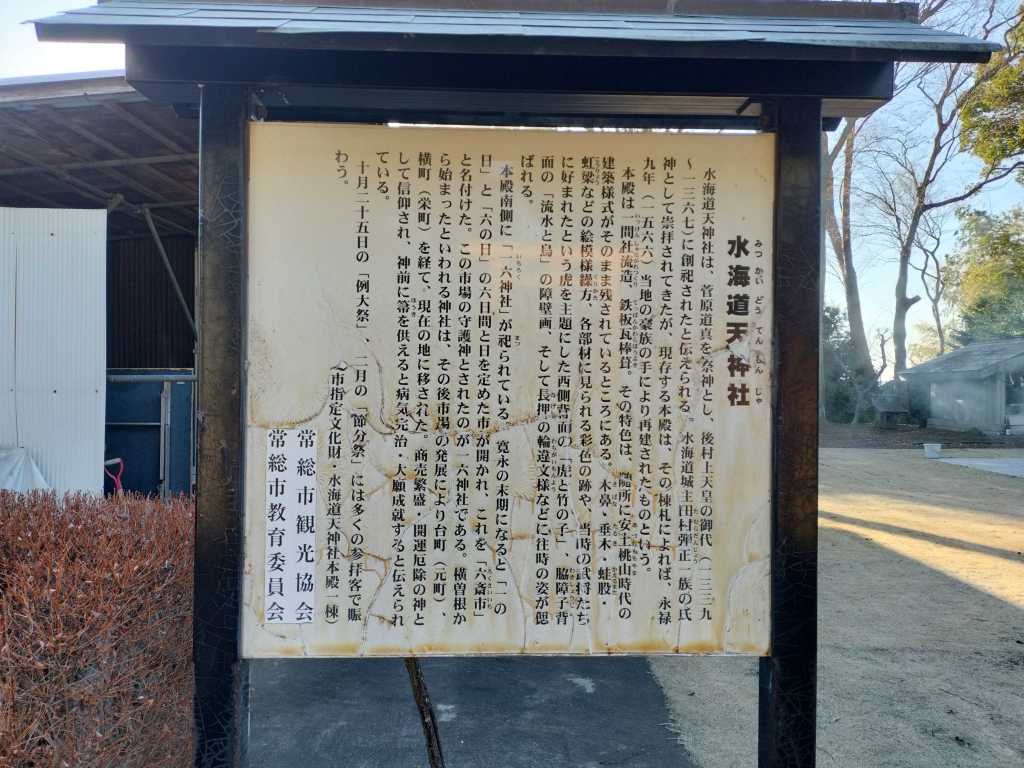 水海道天神社
みつかいどうてんじんじゃ
水海道天神社は、菅原道真を祭神とし、後村上天皇の御代（一三三九
～一三六七）に創祀されたと伝えられる。水海道城主田村弾正一族の氏
神として崇拝されてきたが、現存する本殿は、その棟札によれば、永禄
九年（一五六六）当地の豪族の手により再建されたものという。
本殿は一間社流造、鉄板瓦棒葺、その特色は、随所に安土桃山時代の
建築様式がそのまま残されているところにある。木鼻・垂木・蛙股・
虹梁などの絵模様繰方、各部材に見られる彩色の跡や、当時の武将たち
に好まれたという虎を主題にした西側背面の「虎と竹の子」、脇障子背
面の「流水と鳥」の障壁画、そして長押の輪違文様などに往時の姿が偲
ばれる。
本殿南側に「一六神社」が祀られている。寛永の末期になると「一の
日」と「六の日」の六日間と日を定めた市が開かれ、これを「六斎市」
と名付けた。この市場の守護神とされたのが一六神社である。横曽根か
ら始まったといわれる神社は、その後市場の発展により台町（元町）、
横町（栄町）を経て、現在の地に移された。商売繁盛・開運厄除の神と
して信仰され、神前に箒を供えると病気完治・大願成就すると伝えられ
ている。
十月二十五日の「例大祭」、二月の「節分祭」には多くの参拝客で賑
わう。
（市指定文化財・水海道天神社本殿一棟）
常総市観光協会
常総市教育委員会